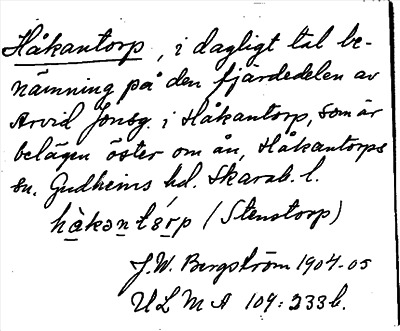 Håkantorp, i dagligt tal be-
nämning på den fjärdedelen av
Arvid Jonsg. i Håkantorp, som är
belägen öster om ån, Håkantorps
sn. Gudhems hd. Skarab. l.
hȧkantȯrp (Stenstorp)
J.W. Bergström 1904-05
ULMA 104:233b.